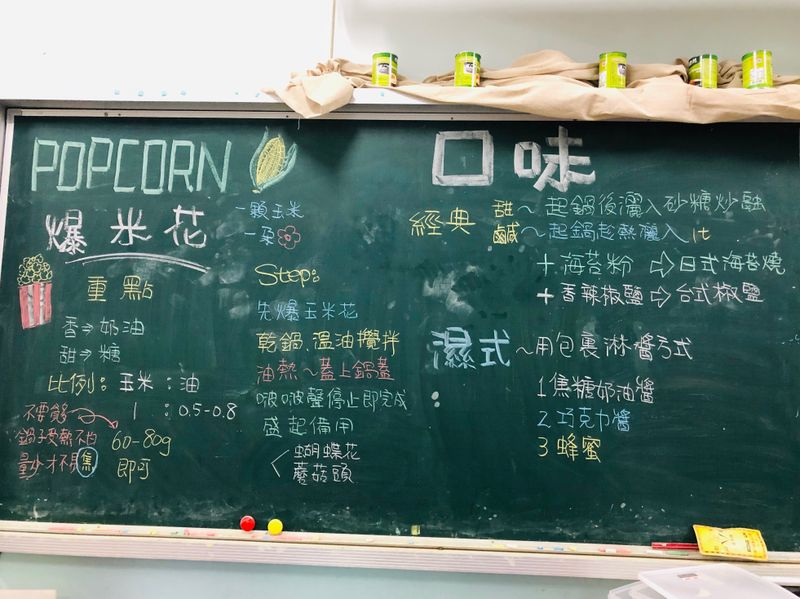 POPCORN
爆米花
一顆玉米
一朵
重點
香⇒奶油
甜⇒糖
比例:玉米:油
1:0.5-0.8
不要多
鍋子受熱不均
量少才不易焦
60-80g
即可
Step:
先爆玉米花
乾鍋、溫油攪拌
油熱~蓋上鍋蓋
啵啵聲停止即完成
盛起備用
蝴蝶花
蘑菇頭
口味
經典
甜~起鍋後灑入砂糖炒融
鹹~起鍋趁熱灑入it
+海苔粉⇨日式海苔燒
+香辣椒鹽⇨台式椒鹽
濕式~用包裹淋醬方式
1焦糖奶油醬
2巧克力醬
3蜂蜜